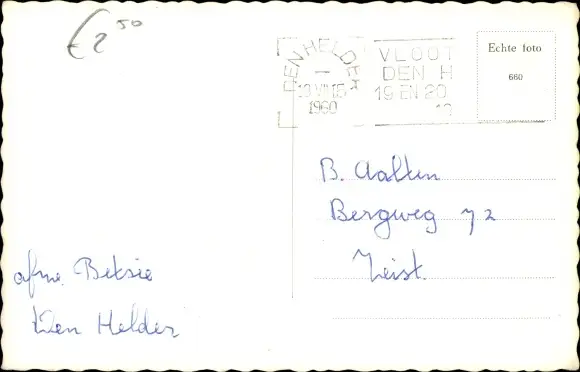 € 2 50
DEN HELDER
1960
VLOOT
DEN H
19 EN 20
Echte foto
660
B. Aalten
Bergweg 72
Zeist.
afne. Betsie
Den Helder